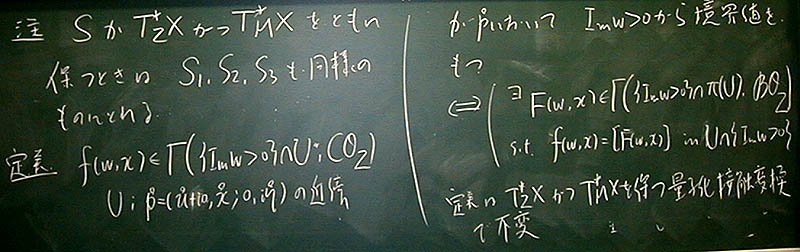 注 SがT*_Z X かつ T*_M X をともに
保つときは S₁, S₂, S₃ も同様の
ものにとれる.
定義 f(w,x)∈Γ({Im w>0}∩U; CO_Z)
U; p̊=(ů+i0, x̊; 0, iη̊) の近傍
がp̊において Im w>0から境界値を
もつ
⇔ ∃F(w,x)∈Γ({Im w>0}∩π(U), BO_Z)
s.t. f(w,x)=[F(w,x)] in U∩{Im w>0}
定義は T*_Z X かつ T*_M X を保つ量子化接触変換
で不変